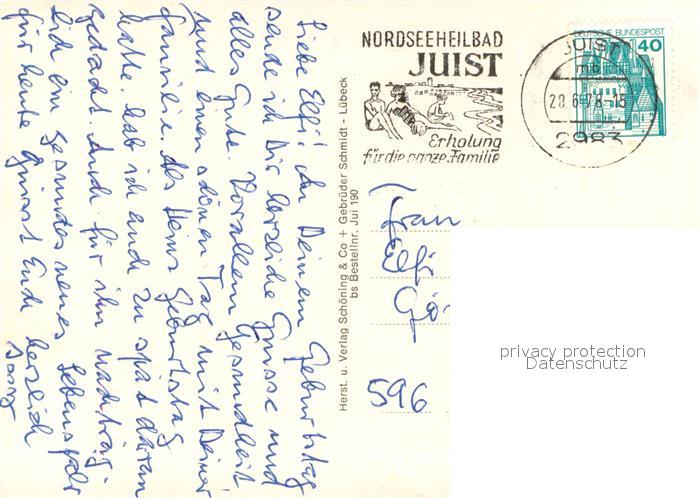 Liebe Elfi! An Deinem Geburtstag
sende ich Dir herzliche Grüsse und
alles Gute. Vorallem Gesundheit
und einen schönen Tag mit Deiner
Familie. Das Heinz Geburtstag
hatte, hab ich auch zu spät daran
gedacht. Auch für ihn nachträg-
lich ein gesundes neues Lebensjahr
für heute Grüsst Euch herzlich
Herst. u. Verlag Schöning & Co + Gebrüder Schmidt - Lübeck
bs Bestellnr. Jui 190
NORDSEEHEILBAD
JUIST
Erholung
für die ganze Familie
DEUTSCHE BUNDESPOST
40
JUIST
mb
28.6.78-15
2983
Frau
Elfi
Gö
596
privacy protection
Datenschutz